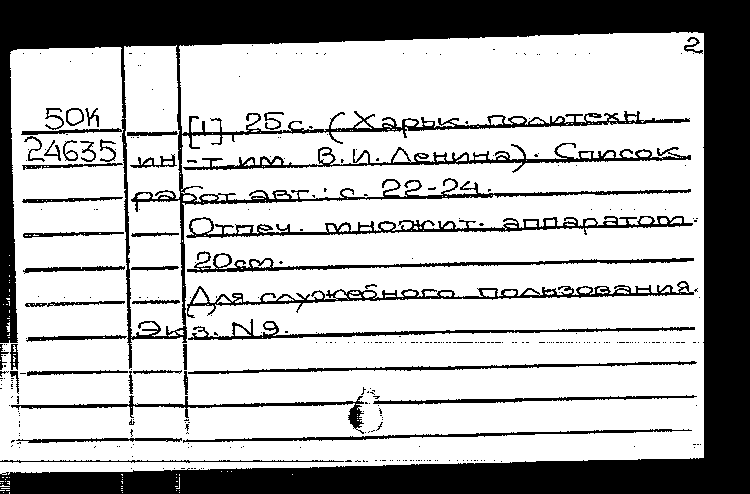 2
50К [1], 25с. (Харьк. политехн.
24635 ин-т им. В.И. Ленина). Список
работ авт.: с. 22-24.
Отпеч. множит. аппаратом.
20см.
Для служебного пользования.
Экз. N9.